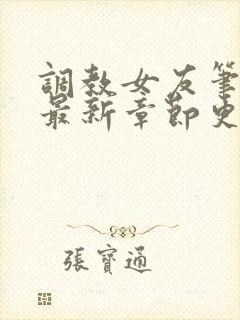 調教女友筆
最新章節史
張寶通